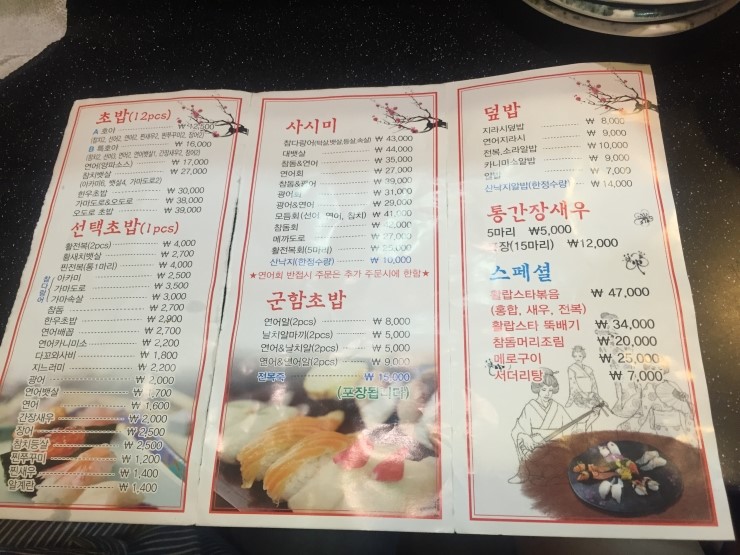 초밥(12pcs)
A 초야 ₩ 12,500
B 특초야 ₩ 16,000
연어(양파소스) ₩ 17,000
참치뱃살 ₩ 27,000
(아카미6, 뱃살4, 가마도로2)
한우초밥 ₩ 30,000
가마도로&오도로 ₩ 38,000
오도로 초밥 ₩ 39,000
선택초밥(1pcs)
활전복(2pcs) ₩ 4,000
활새치뱃살 ₩ 2,700
찐전복(통1마리) ₩ 4,000
참다랑어
아카미 ₩ 2,500
가마도로 ₩ 3,500
가마속살 ₩ 3,000
참돔 ₩ 2,700
한우초밥 ₩ 2,900
연어배꼽 ₩ 2,700
연어카니미소 ₩ 2,200
다꼬와사비 ₩ 1,800
지느러미 ₩ 2,200
광어 ₩ 2,000
연어뱃살 ₩ 1,700
연어 ₩ 1,600
간장새우 ₩ 2,000
장어 ₩ 2,500
참치등살 ₩ 2,500
찐쭈꾸미 ₩ 1,200
찐새우 ₩ 1,400
알계란 ₩ 1,400
사시미
참다랑어(턱살,뱃살,등살,속살) ₩ 43,000
대뱃살 ₩ 44,000
참돔&연어 ₩ 35,000
연어회 ₩ 27,000
참돔&광어 ₩ 39,000
광어회 ₩ 31,000
광어&연어 ₩ 29,000
모듬회(선어, 연어, 참치) ₩ 41,000
참돔회 ₩ 42,000
메까도로 ₩ 27,000
활전복회(5마리) ₩ 25,000
산낙지(한정수량) ₩ 10,000
★연어회 반접시 주문은 추가 주문시에 한함★
군함초밥
연어알(2pcs) ₩ 8,000
날치알마끼(2pcs) ₩ 5,000
연어&날치알(2pcs) ₩ 5,000
연어&연어알(2pcs) ₩ 9,000
전복죽 ₩ 15,000
(포장됩니다)
덮밥
지라시덮밥 ₩ 8,000
연어지라시 ₩ 9,000
전복,소라알밥 ₩ 10,000
카니미소알밥 ₩ 9,000
알밥 ₩ 7,000
산낙지알밥(한정수량) ₩ 14,000
통간장새우
5마리 ₩5,000
1장(15마리) ₩12,000
스페셜
활랍스타볶음 ₩ 47,000
(홍합, 새우, 전복)
활랍스타 뚝배기 ₩ 34,000
참돔머리조림 ₩ 20,000
메로구이 ₩ 25,000
서더리탕 ₩ 7,000